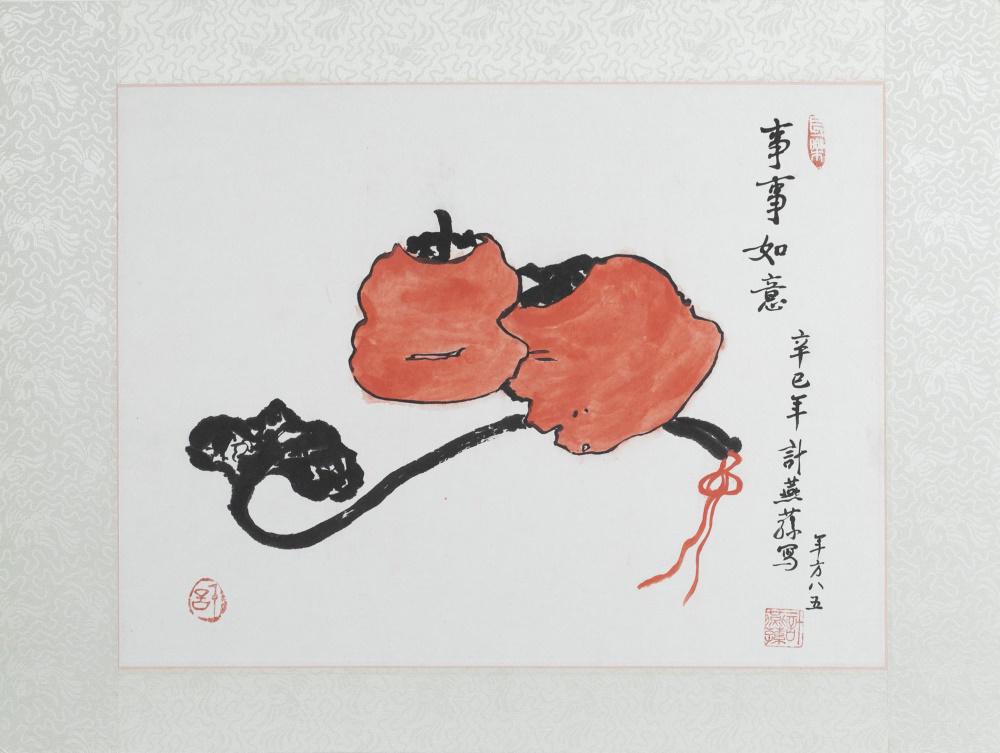 事事如意
辛巳年計燕蓀寫
年方八五
長樂